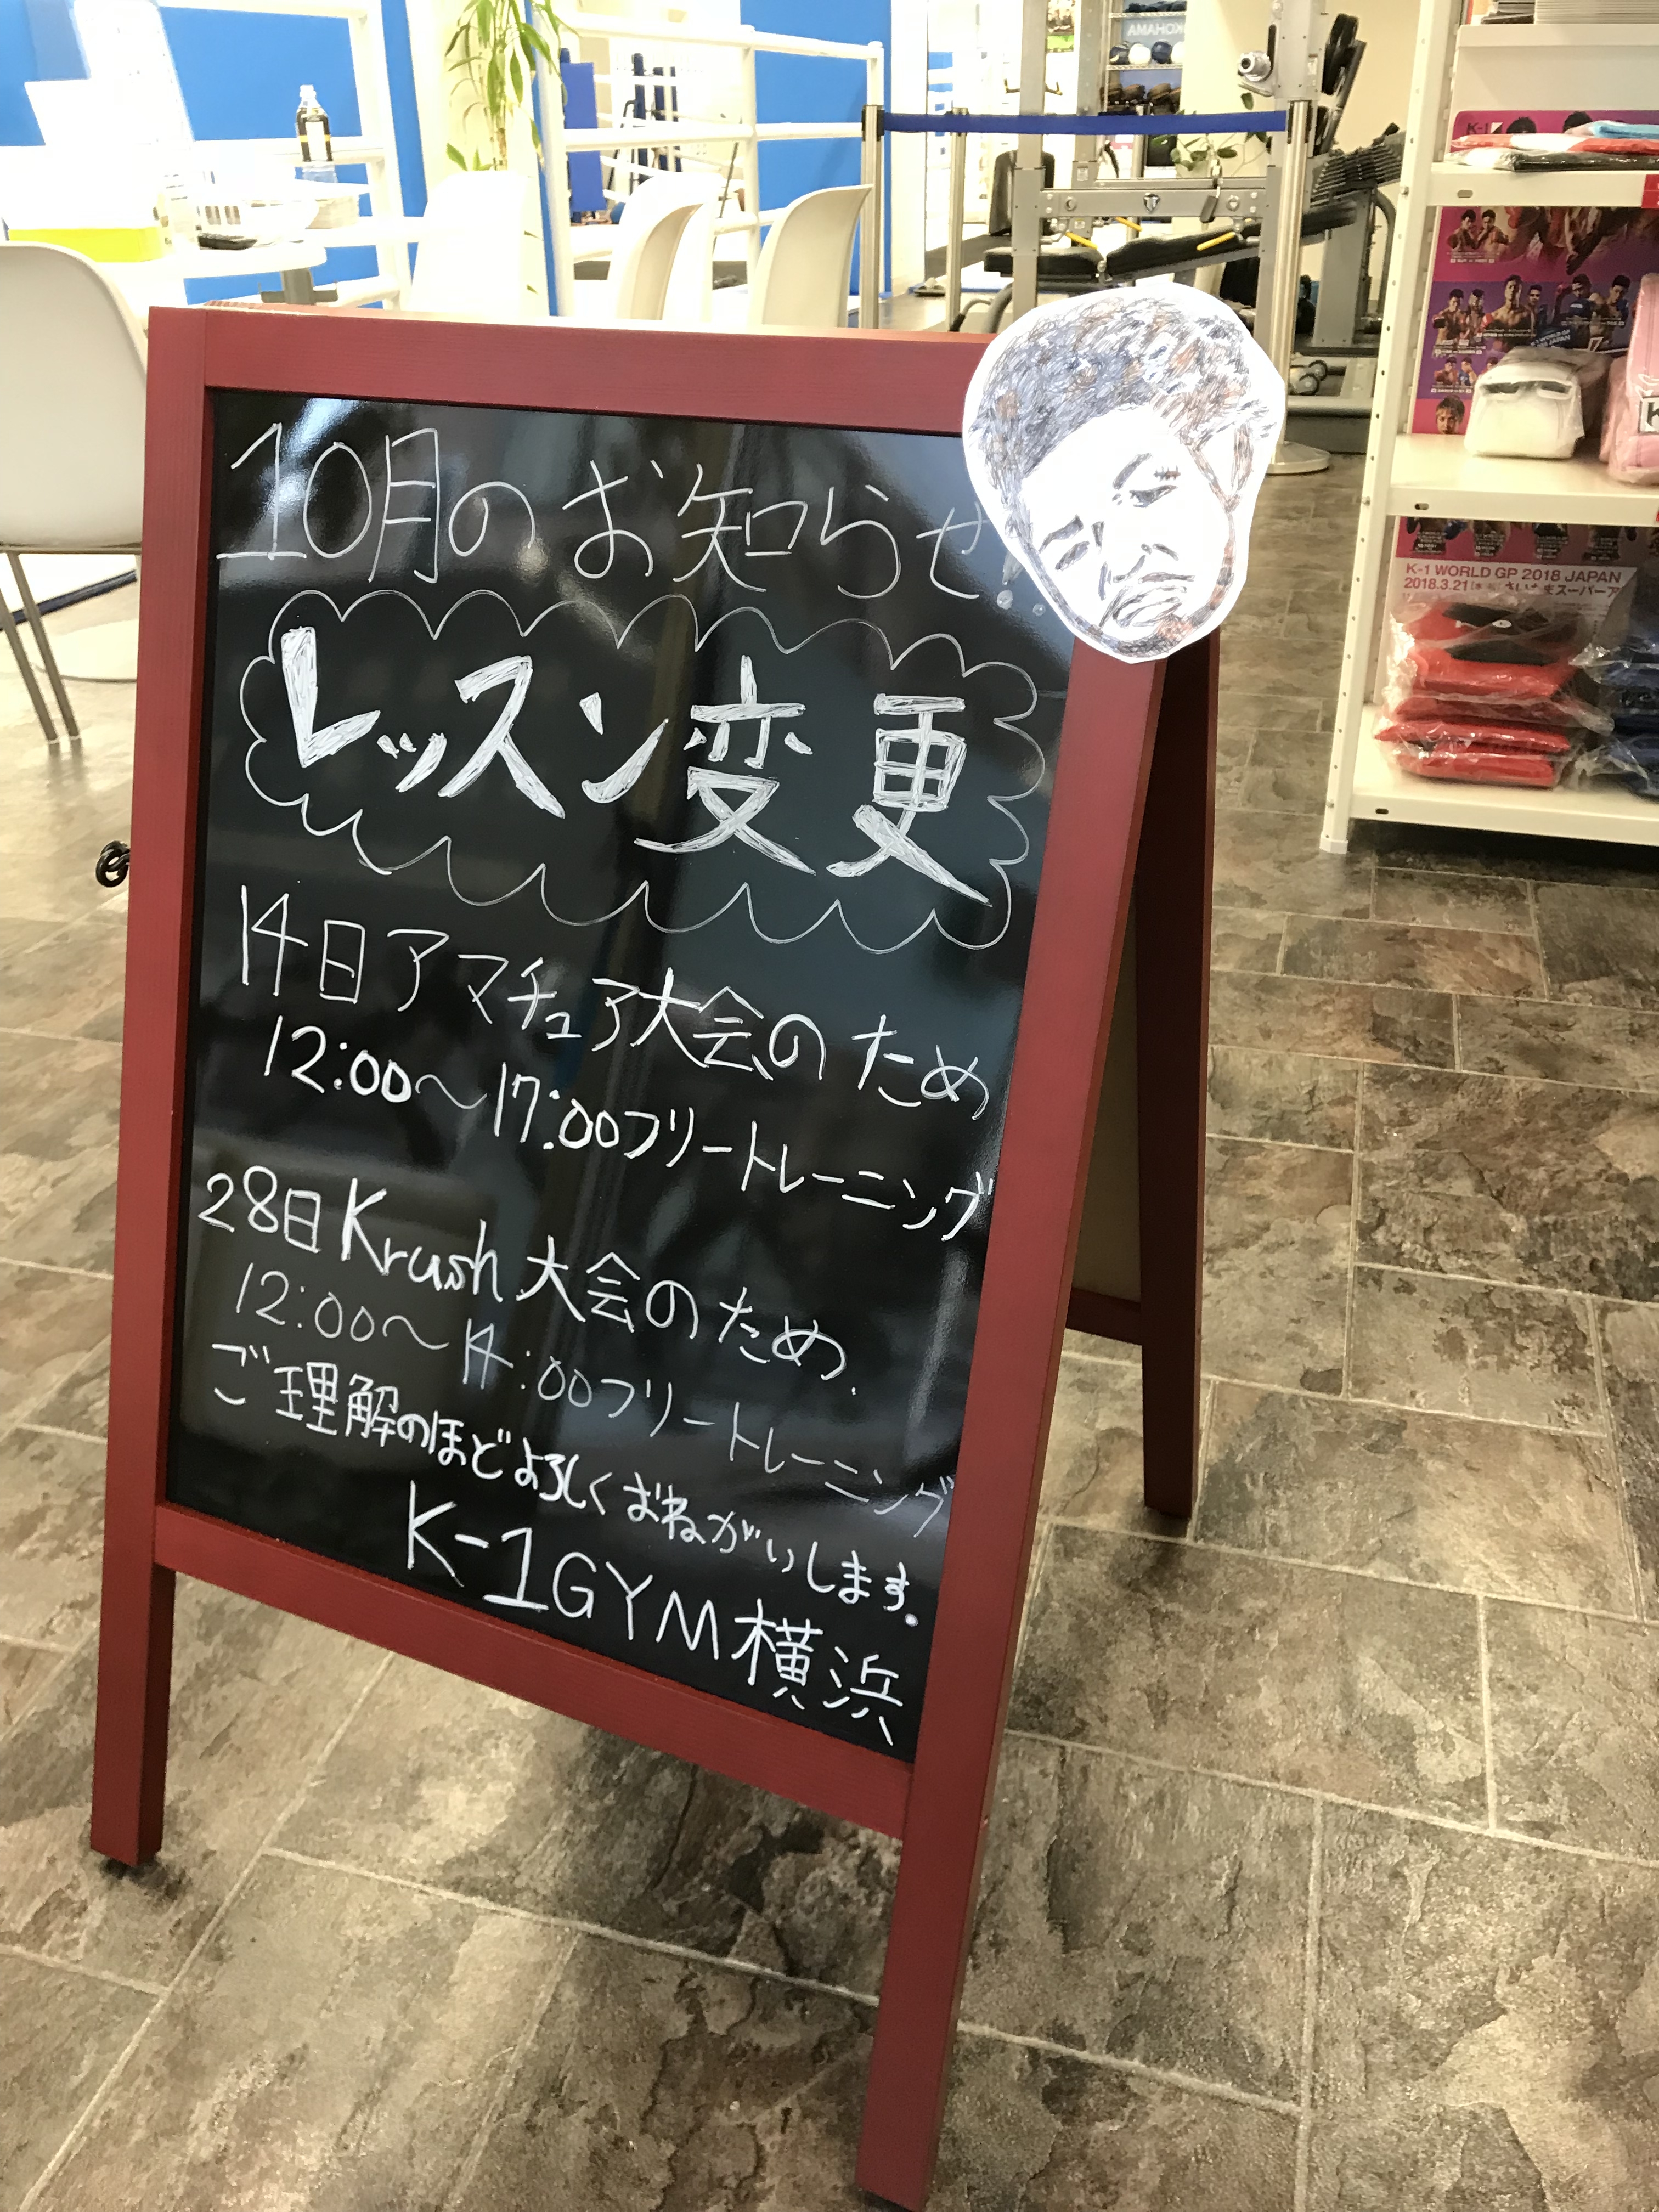 10月のお知らせ!!
レッスン変更
14日アマチュア大会のため
12:00〜17:00フリートレーニング
28日Krush大会のため
12:00〜14:00フリートレーニング
ご理解のほどよろしくおねがいします。
K-1GYM横浜
K-1
K-1 WORLD GP 2018 JAPAN
2018.3.21